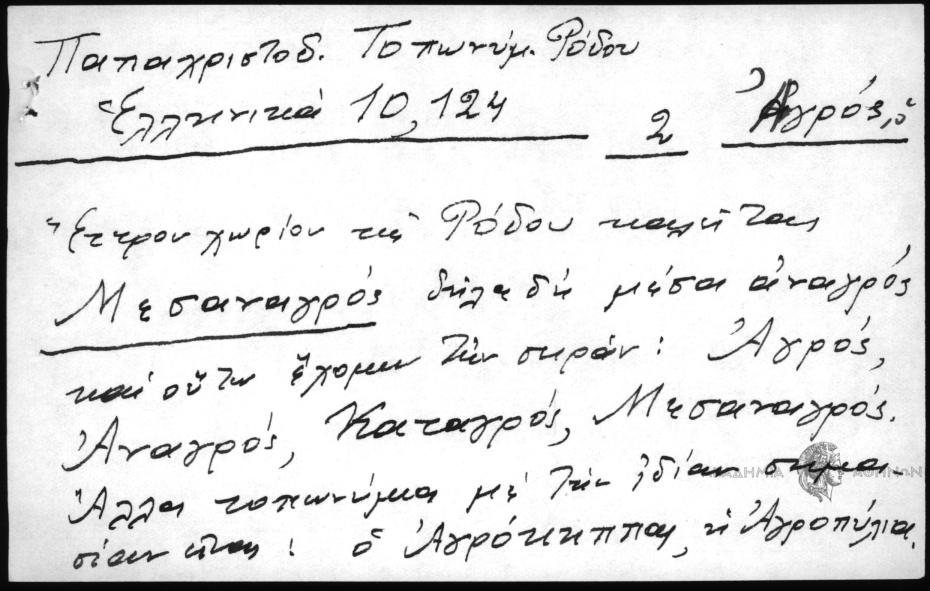 Παπαχριστοδ. Τοπωνύμ. Ρόδου
Ἑλληνικά 10, 124 2 Ἀγρός, ὁ
Ἕτερον χωρίον τῆς Ρόδου καλεῖται
Μεσαναγρός δηλαδή μέσα ἀναγρός
καί οὕτω ἔχομεν τήν σειράν : Ἀγρός,
Ἀναγρός, Καταγρός, Μεσαναγρός.
Ἄλλα τοπωνύμια μέ τήν ἰδίαν σημα-
σίαν εἶναι : ὁ Ἀγρόκηππας, ἡ Ἀγροπύλια.
ΑΚΑΔΗΜΙΑ ΑΘΗΝΩΝ